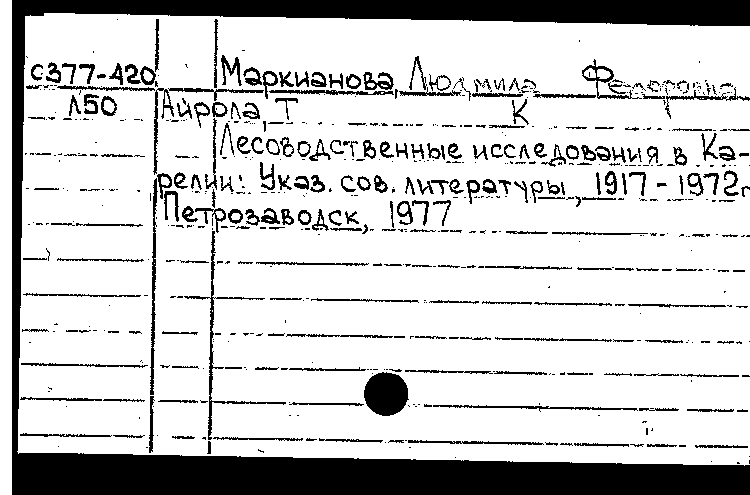 С377-420 Маркианова, Людмила Федоровна
Л50 Айрола, Т К
Лесоводственные исследования в Ка-
релии: Указ. сов. литературы, 1917-1972г
Петрозаводск, 1977